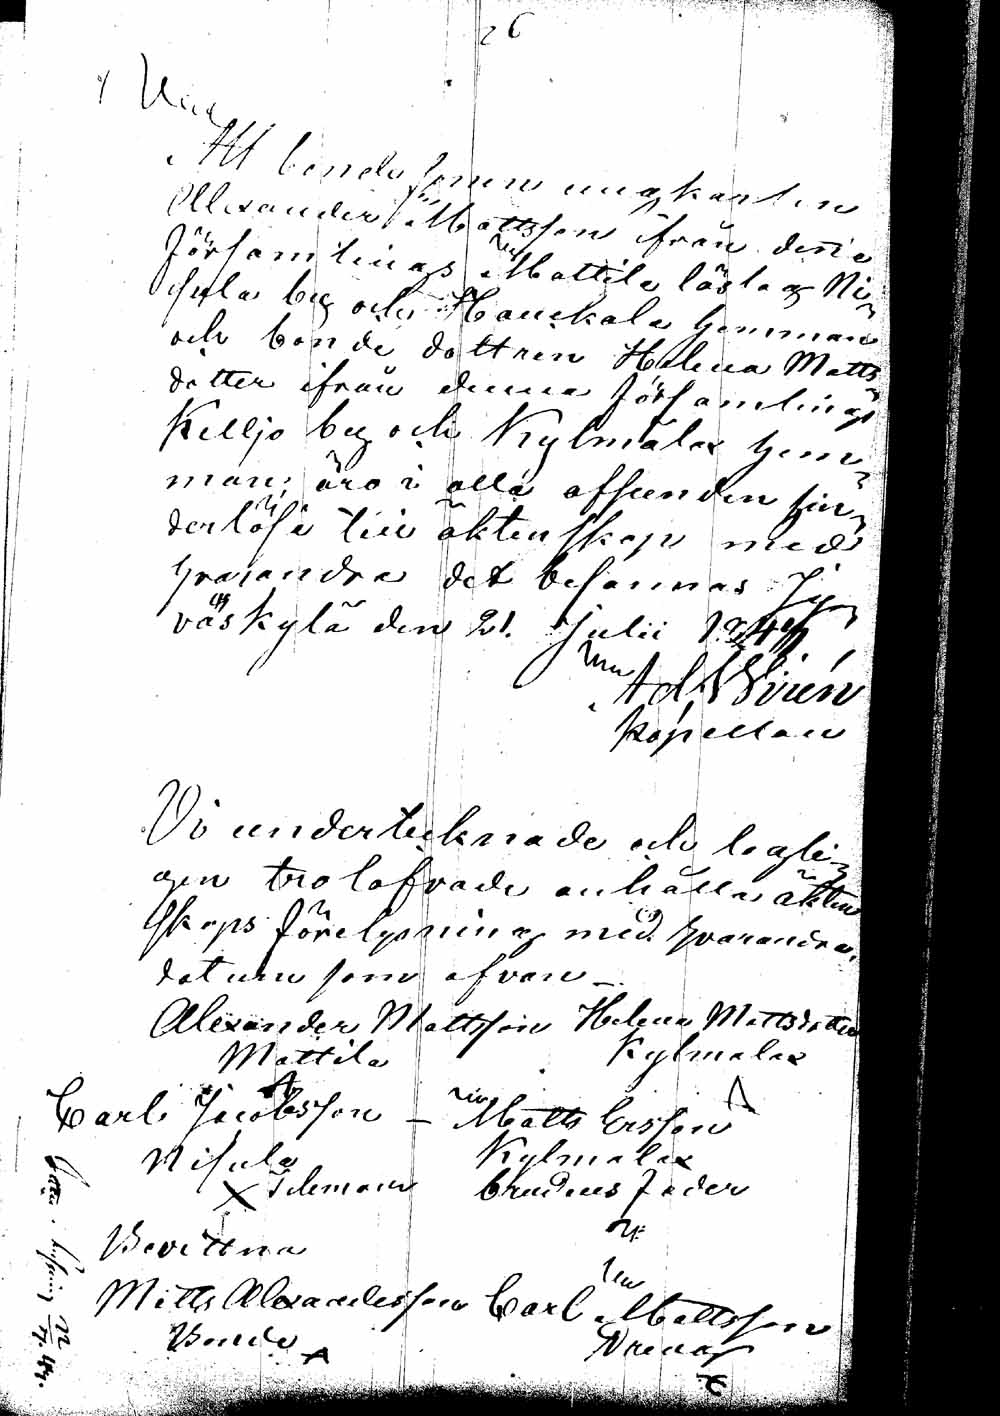 26
Att bonde sonen ungkarlen
Alexander Mattsson ifrån denna
församlings Mattila lösta Ni-
sula by och Hauskala hemman
och bonde dottren Helena Matts
dotter ifrån denna församlings
Keljo by och Kylmälax hem-
man, äro i alla afseenden hin-
derlöse till äktenskap med
hvarandra det besannas Jy-
väskylä den 21. Julii 1844
Ad. Wirén
kapellan
Vi undertecknade och lagli-
gen trolofvade anhålla äkten
skaps förelysning med hvarandra
datum som ofvan
Alexander Mattsson Helena Mattsdotter
Mattila Kylmalax
Carl Jacobsson – Matts Ersson
Nisula Kylmalax
brudens fader
Bevittna
Matts Alexandersson Carl Mattsson
Bonde Dreng